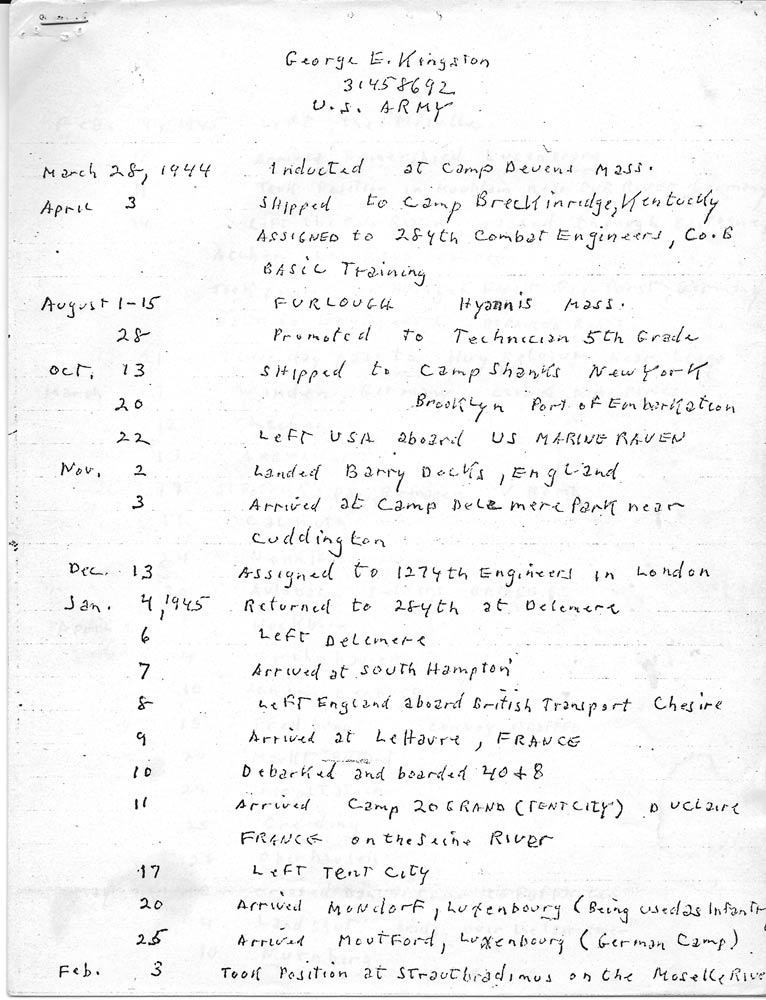 George E. Kingston
31458692
U.S. ARMY
March 28, 1944 Inducted at Camp Devens Mass.
April 3 Shipped to Camp Breckinridge, Kentucky
ASSIGNED to 284th Combat Engineers, Co. B
BASIC Training
August 1-15 FURLOUGH Hyannis Mass.
28 Promoted to Technician 5th Grade
Oct. 13 Shipped to Camp Shanks New York
20 Brooklyn Port of Embarkation
22 Left USA aboard US MARINE RAVEN
Nov. 2 Landed Barry Docks, England
3 Arrived at Camp Delemere Park near
Cuddington
Dec. 13 Assigned to 1274th Engineers in London
Jan. 4, 1945 Returned to 284th at Delemere
6 Left Delemere
7 Arrived at South Hampton
8 Left England aboard British Transport Chesire
9 Arrived at LeHavre, FRANCE
10 Debarked and boarded 40+8
11 Arrived Camp 20 GRAND (TENT CITY) Duclaire
FRANCE on the Seine RIVER
17 Left Tent City
20 Arrived Mondorf, Luxenbourg (Being used as Infantr
25 Arrived Moutford, Luxenbourg (German Camp)
Feb. 3 Took Position at Strautbradimus on the Moselle Rive